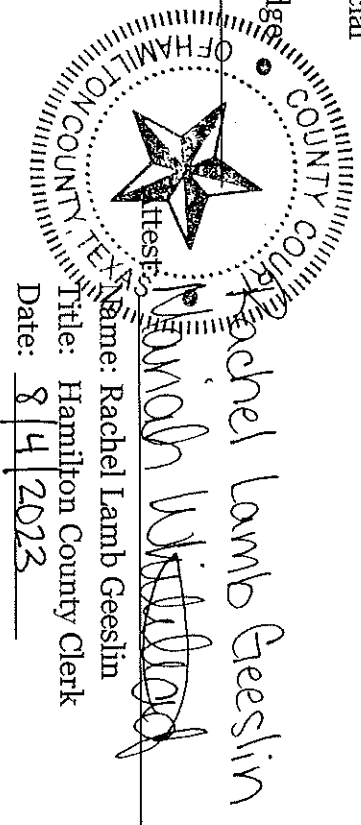 COUNTY COURT
OF HAMILTON COUNTY, TEXAS
Rachel Lamb Geeslin
Attest:
Name: Rachel Lamb Geeslin
Title: Hamilton County Clerk
Date: 8/4/2023